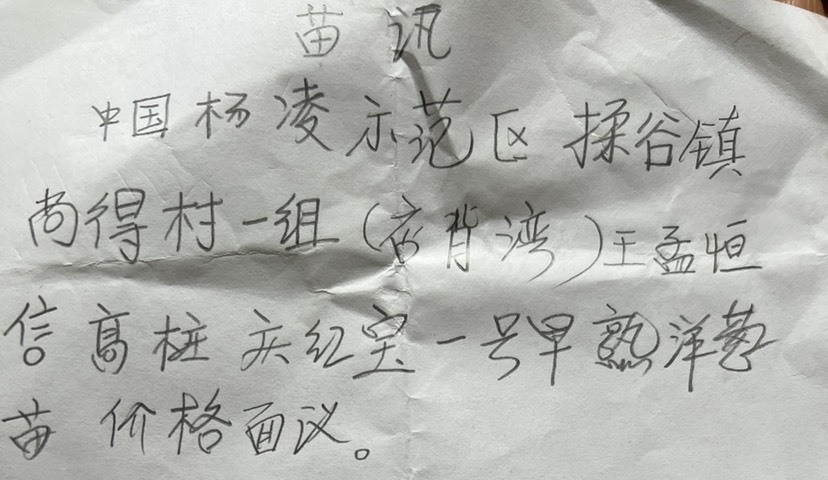 苗讯
中国杨凌示范区揉谷镇
尚得村一组(店背湾)王孟恒
信高桩庆红宝一号早熟洋葱
苗价格面议。